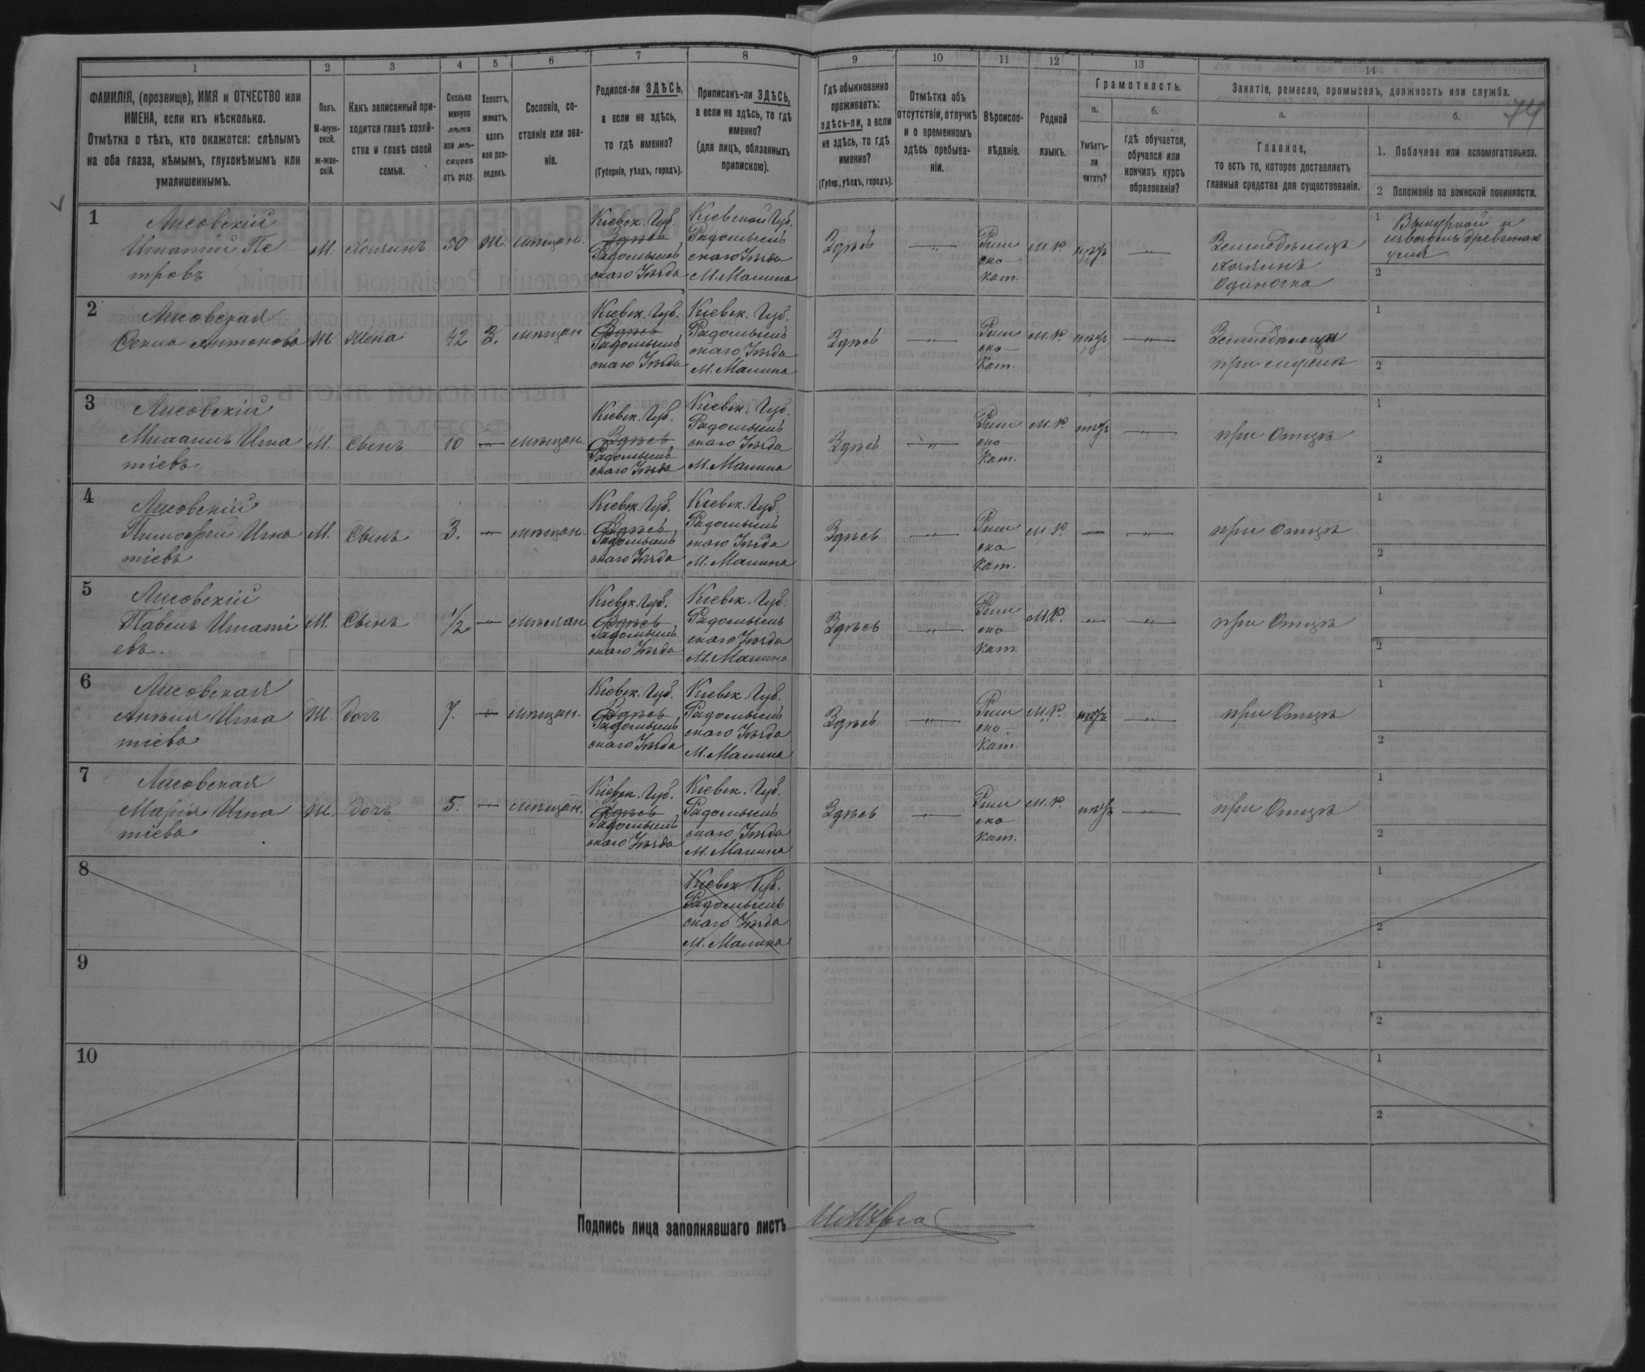 1 2 3 4 5 6 7 8 9 10 11 12 13 14
74
ФАМИЛІЯ, (прозвище), ИМЯ и ОТЧЕСТВО или
ИМЕНА, если ихъ нѣсколько.
Отмѣтка о тѣхъ, кто окажется: слѣпымъ
на оба глаза, нѣмымъ, глухонѣмымъ или
умалишеннымъ.
Полъ.
М-муж-
ской.
ж-жен-
скій.
Какъ записанный при-
ходится главѣ хозяй-
ства и главѣ своей
семьи.
Сколько
минуло
лѣтъ
или мѣ-
сяцевъ
отъ роду.
Холостъ,
женатъ,
вдовъ
или раз-
веденъ.
Сословіе, со-
стояніе или зва-
ніе.
Родился-ли ЗДѢСЬ,
а если не здѣсь,
то гдѣ именно?
(Губернія, уѣздъ, городъ).
Приписанъ-ли ЗДѢСЬ,
а если не здѣсь, то гдѣ
именно?
(для лицъ, обязанныхъ
припискою).
Гдѣ обыкновенно
проживаетъ:
здѣсь-ли, а если
не здѣсь, то гдѣ
именно?
(Губер., уѣздъ, городъ).
Отмѣтка объ
отсутствіи, отлучкѣ
и о временномъ
здѣсь пребыва-
ніи.
Вѣроиспо-
вѣданіе.
Родной
языкъ.
Грамотность.
а.
Умѣетъ-
ли
читать?
б.
гдѣ обучается,
обучался или
кончилъ курсъ
образованія?
Занятіе, ремесло, промыселъ, должность или служба.
а.
Главное,
то есть то, которое доставляетъ
главныя средства для существованія.
б.
1. Побочное или вспомогательное.
2 Положеніе по воинской повинности.
1
Лисовскій
Игнатій Пе
тровъ
М. Хозяинъ 50 Ж. мѣщан.
Кіевск. Губ.
Здѣсь
Радомысль
скаго Уѣзда
Кіевской Губ.
Радомысль
скаго Уѣзда
М. Малина
Здѣсь
Рим
ско
кат.
Земледѣлецъ
Хозяинъ
1
2
2
Лисовская
Антонова
Ж. Жена 42 З. мѣщан
Кіевск. Губ.
Здѣсь
Радомысль
скаго Уѣзда
Кіевск. Губ.
Радомысль
скаго Уѣзда
М. Малина
Здѣсь
Рим
ско
Кат.
при
1
2
3
Лисовскій
Михаилъ Игна
тіевъ
М. Сынъ 10 — мѣщан.
Кіевск. Губ.
Здѣсь
Радомысль
скаго Уѣзда
Кіевск. Губ.
Радомысль
скаго Уѣзда
М. Малина
Здѣсь
Рим
ско
Кат.
при Отцѣ
1
2
4
Лисовскій
Тимофей Игна
тіевъ
М. Сынъ 3. — мѣщан.
Кіевск. Губ.
Здѣсь
Радомысль
скаго Уѣзда
Кіевск. Губ.
Радомысль
скаго Уѣзда
М. Малина
Здѣсь
Рим
ско
Кат.
при Отцѣ
1
2
5
Лисовскій
Павелъ Игнаті
евъ.
М. Сынъ 1/2 — мѣщан
Кіевск. Губ.
Здѣсь
Радомысль
скаго Уѣзда
Кіевск. Губ.
Радомысль
скаго Уѣзда
М. Малина
Здѣсь
Рим
ско
кат.
при Отцѣ
1
2
6
Лисовская
Игна
тіева
Ж. дочь 7. — мѣщан.
Кіевск. Губ.
Здѣсь
Радомысль
скаго Уѣзда
Кіевск. Губ.
Радомысль
скаго Уѣзда
М. Малина
Здѣсь
Рим
ско
Кат.
при Отцѣ
1
2
7
Лисовская
Марія Игна
тіева
Ж. дочь 5. — мѣщан.
Кіевск. Губ.
Здѣсь
Радомысль
скаго Уѣзда
Кіевск. Губ.
Радомысль
скаго Уѣзда
М. Малина
Здѣсь
Рим
ско
кат.
при Отцѣ
1
2
8
Кіевск. Губ.
Радомысль
скаго Уѣзда
М. Малина
1
2
9
1
2
10
1
2
Подпись лица заполнявшаго листъ